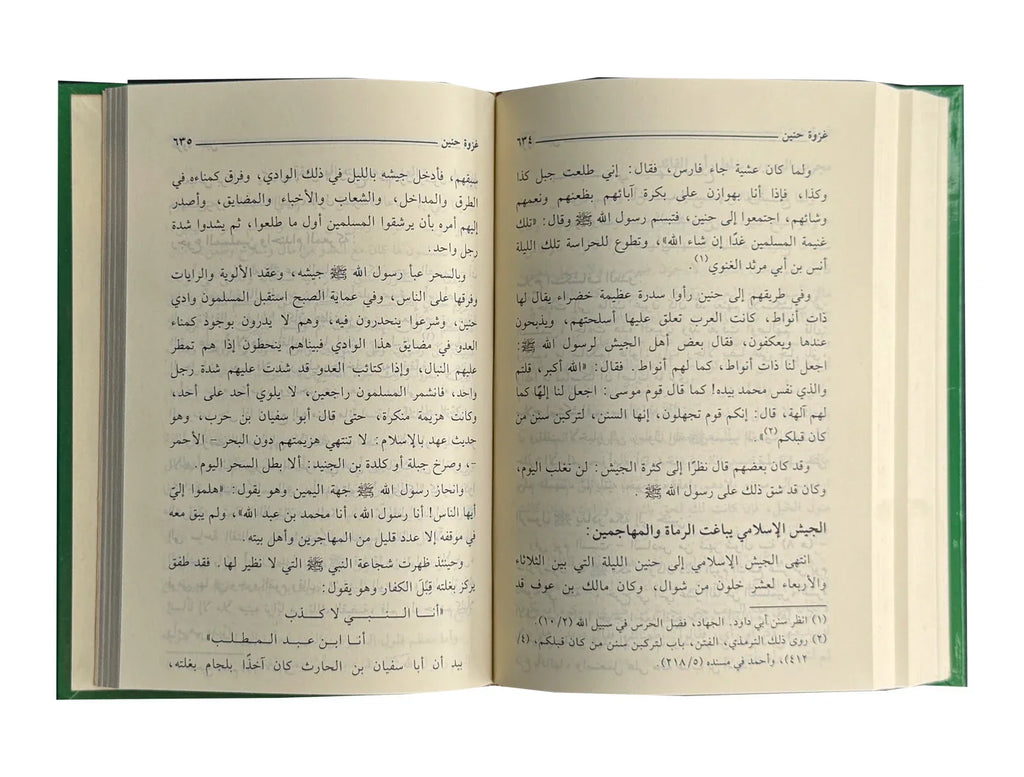 غزوة حنين ٦٣٤
ولما كان عشية جاء فارس، فقال: إني طلعت جبل كذا
وكذا، فإذا أنا بهوازن على بكرة آبائهم بظعنهم ونعمهم
وشائهم، اجتمعوا إلى حنين، فتبسم رسول الله ﷺ وقال: «تلك
غنيمة المسلمين غدًا إن شاء الله»، وتطوع للحراسة تلك الليلة
أنس بن أبي مرثد الغنوي(١).
وفي طريقهم إلى حنين رأوا سدرة عظيمة خضراء يقال لها
ذات أنواط، كانت العرب تعلق عليها أسلحتهم، ويذبحون
عندها ويعكفون، فقال بعض أهل الجيش لرسول الله ﷺ:
اجعل لنا ذات أنواط، كما لهم أنواط. فقال: «الله أكبر، قلتم
والذي نفس محمد بيده! كما قال قوم موسى: اجعل لنا إلهًا كما
لهم آلهة، قال: إنكم قوم تجهلون، إنها السنن، لتركبن سنن من
كان قبلكم(٢)».
وقد كان بعضهم قال نظرًا إلى كثرة الجيش: لن نغلب اليوم،
وكان قد شق ذلك على رسول الله ﷺ .
الجيش الإسلامي يباغت الرماة والمهاجمين:
انتهى الجيش الإسلامي إلى حنين الليلة التي بين الثلاثاء
والأربعاء لعشر خلون من شوال، وكان مالك بن عوف قد
(١) انظر سنن أبي داود. الجهاد، فضل الحرس في سبيل الله (١٠/٢).
(٢) روى ذلك الترمذي، الفتن، باب لتركبن سنن من كان قبلكم، (٤/
٤١٢)، وأحمد في مسنده (٢١٨/٥)
غزوة حنين ٦٣٥
سبقهم، فأدخل جيشه بالليل في ذلك الوادي، وفرق كمناءه في
الطرق والمداخل، والشعاب والأخباء والمضايق، وأصدر
إليهم أمره بأن يرشقوا المسلمين أول ما طلعوا، ثم يشدوا شدة
رجل واحد.
وبالسحر عبأ رسول الله ﷺ جيشه، وعقد الألوية والرايات
وفرقها على الناس، وفي عماية الصبح استقبل المسلمون وادي
حنين، وشرعوا ينحدرون فيه، وهم لا يدرون بوجود كمناء
العدو في مضايق هذا الوادي فبيناهم ينحطون إذا هم تمطر
عليهم النبال، وإذا كتائب العدو قد شدت عليهم شدة رجل
واحد، فانشمر المسلمون راجعين، لا يلوي أحد على أحد،
وكانت هزيمة منكرة، حتى قال أبو سفيان بن حرب، وهو
حديث عهد بالإسلام: لا تنتهي هزيمتهم دون البحر - الأحمر
-، وصرخ جبلة أو كلدة بن الجنيد: ألا بطل السحر اليوم.
وانحاز رسول الله ﷺ جهة اليمين وهو يقول: «هلموا إليّ
أيها الناس! أنا رسول الله، أنا محمد بن عبد الله»، ولم يبق معه
في موقفه إلا عدد قليل من المهاجرين وأهل بيته.
وحينئذ ظهرت شجاعة النبي ﷺ التي لا نظير لها. فقد طفق
يركز بغلته قِبَل الكفار وهو يقول:
«أنـا الـنـبـي لا كـذب
أنـا ابـن عـبـد الـمـطـلـب»
بيد أن أبا سفيان بن الحارث كان آخذًا بلجام بغلته،